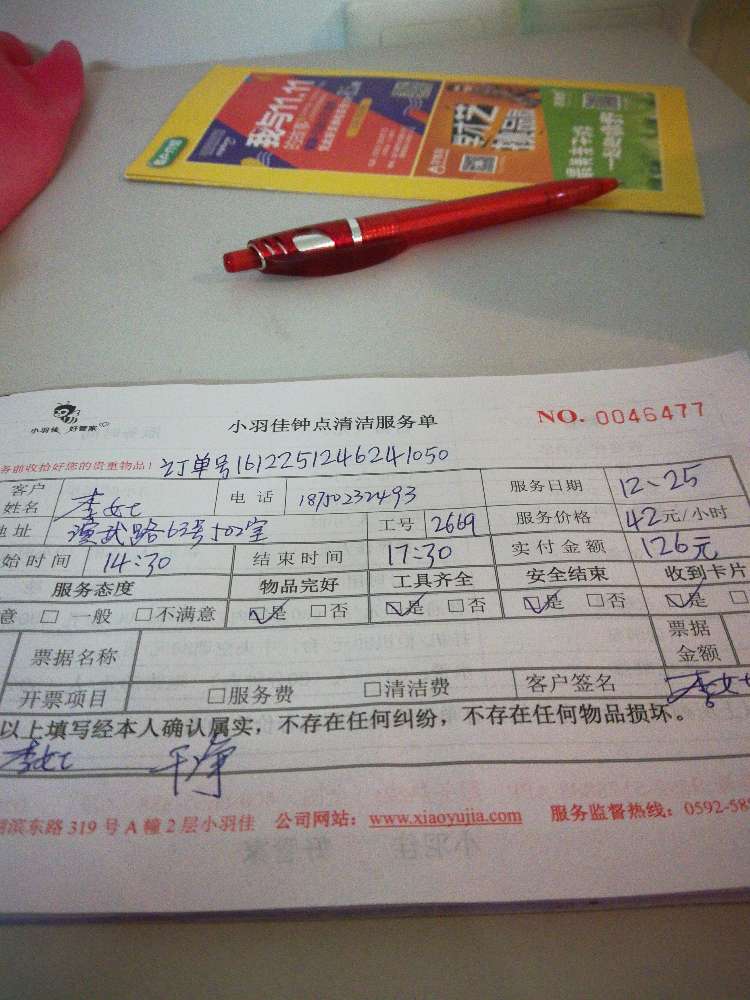 我与什.什
小羽佳 好管家
小羽佳钟点清洁服务单
NO. 0046477
务前收拾好您的贵重物品! 订单号1612251246241050
客户姓名 李女士 电话 18750232493 服务日期 12、25
地址 演武路63号502室 工号 2669 服务价格 42元/小时
始时间 14:30 结束时间 17:30 实付金额 126元
服务态度 物品完好 工具齐全 安全结束 收到卡片
意 □一般 □不满意 ☑是 □否 ☑是 □否 ☑是 □否 ☑是 □
票据名称 票据金额
开票项目 □服务费 □清洁费 客户签名 李女士
以上填写经本人确认属实，不存在任何纠纷，不存在任何物品损坏。
李女士 干净
滨东路319号A幢2层小羽佳 公司网站：www.xiaoyujia.com 服务监督热线：0592-58